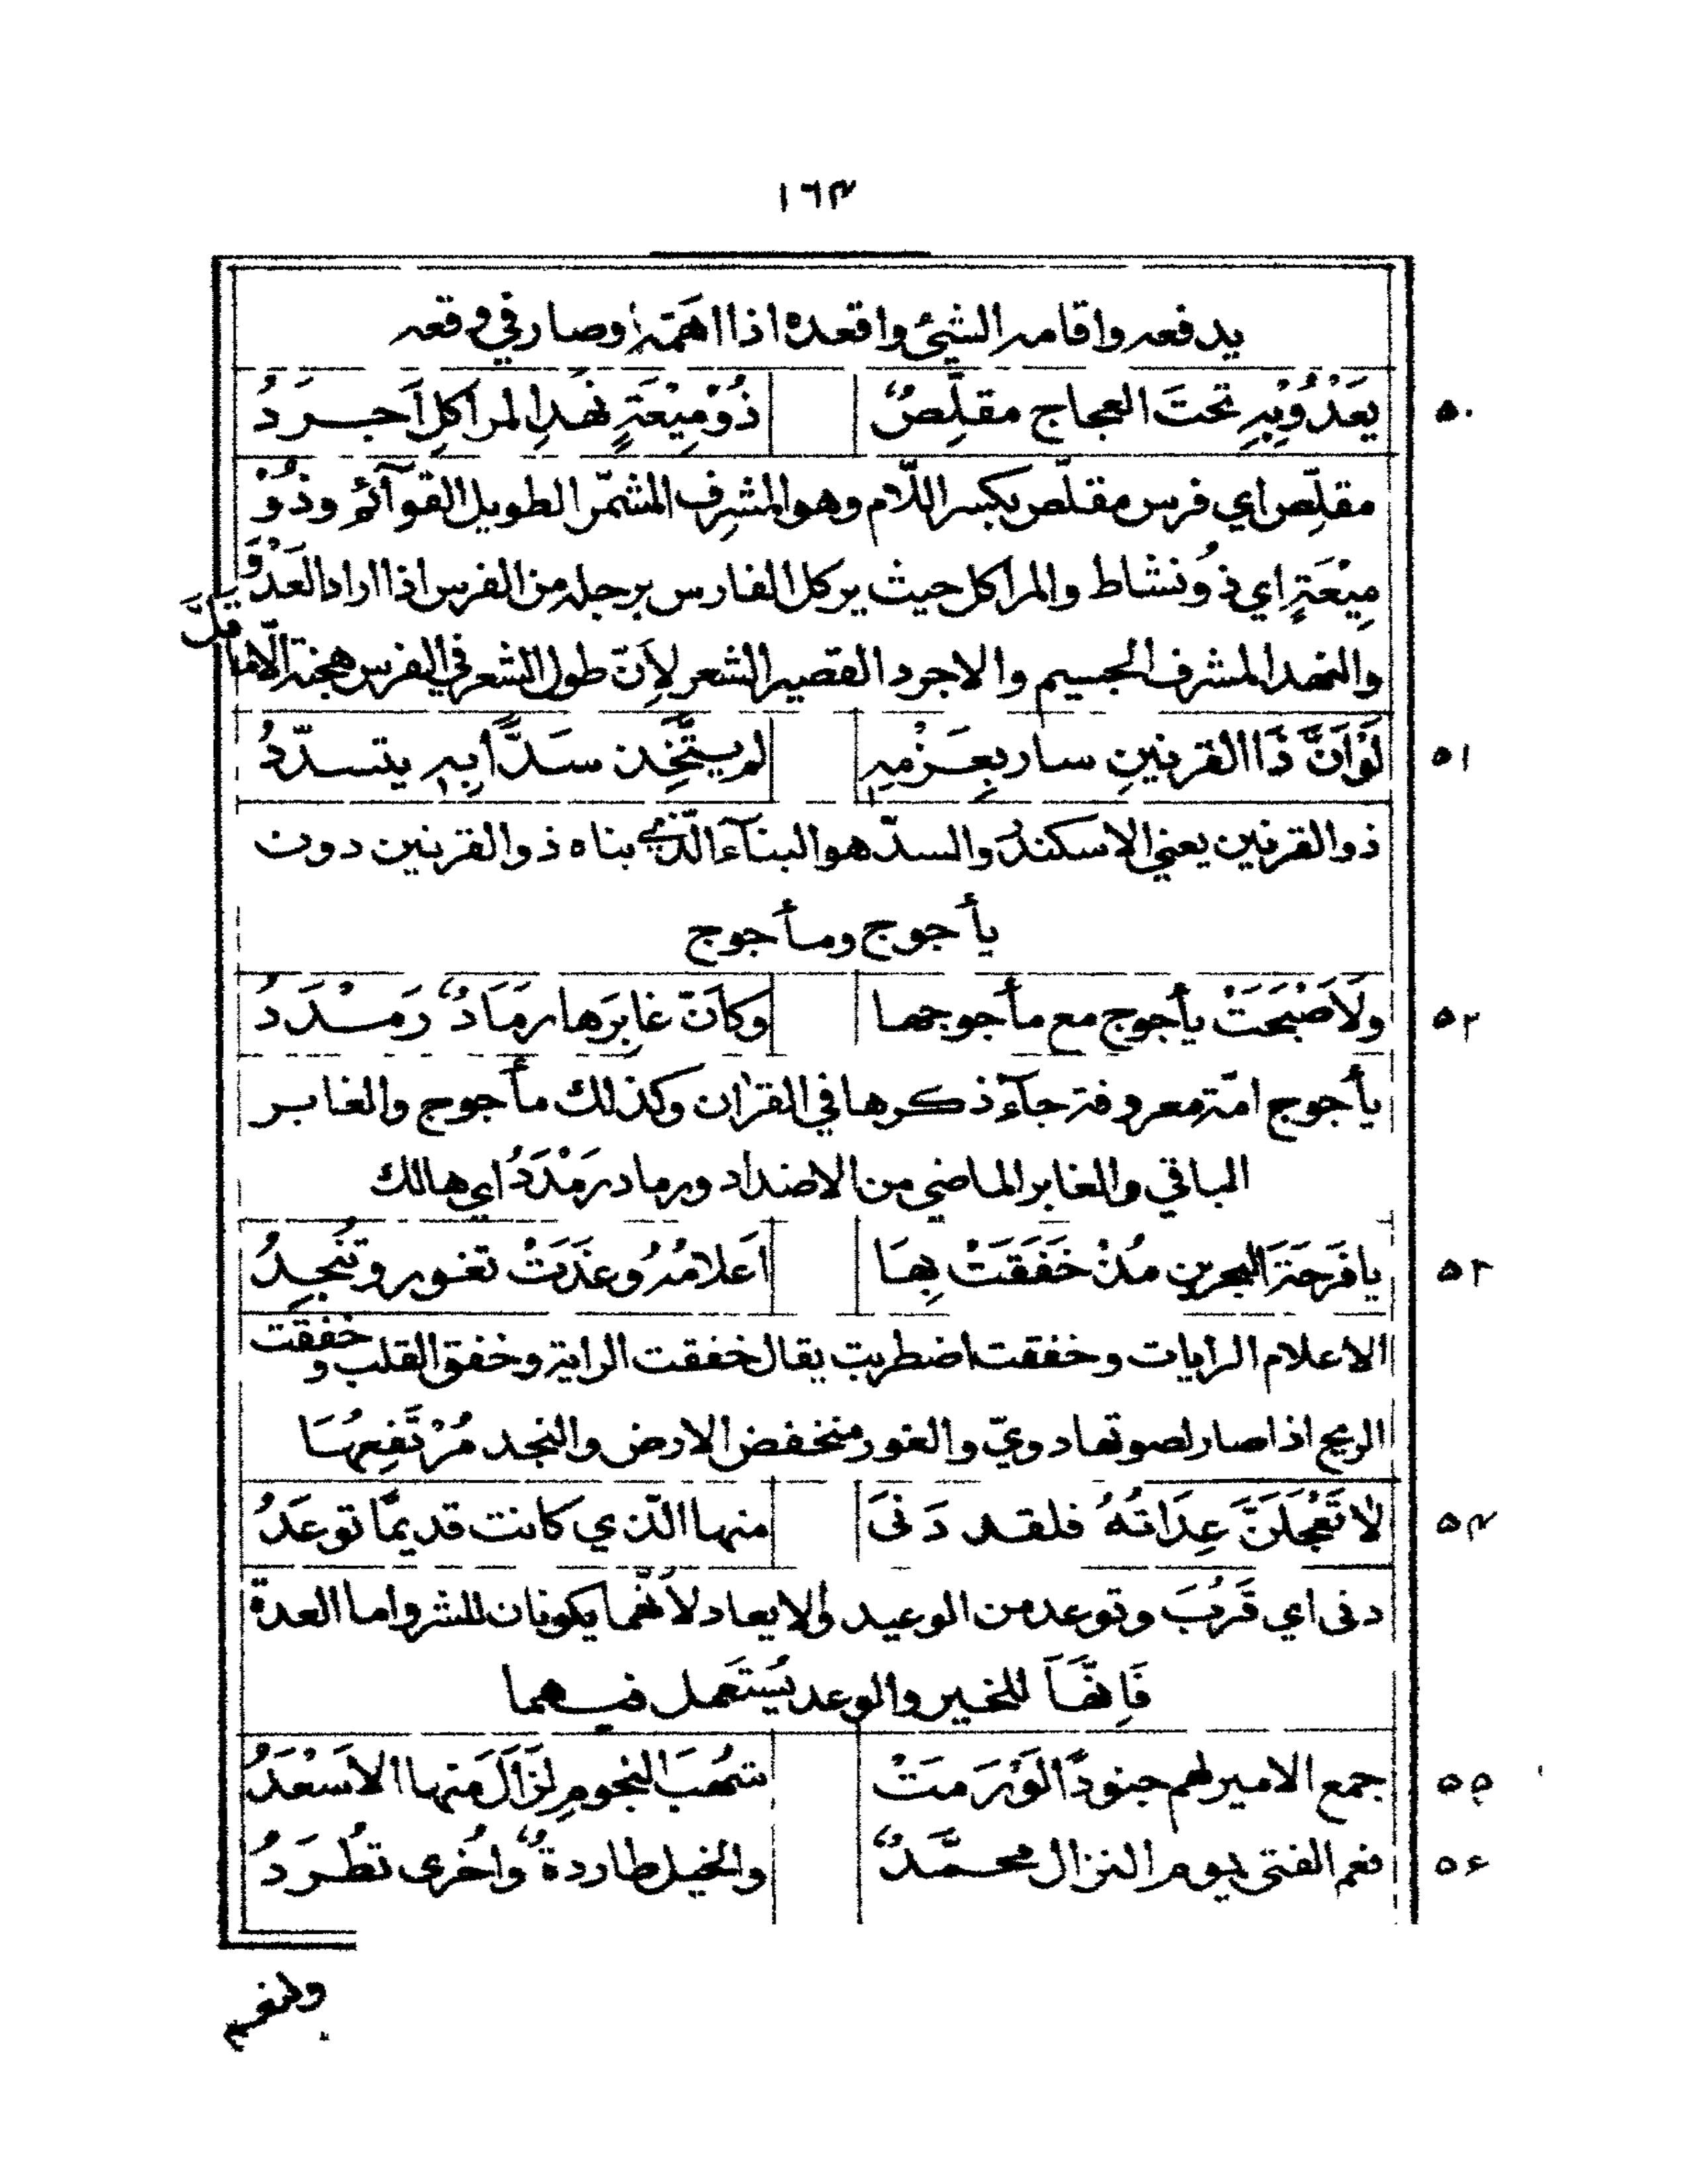 ١٦٤
يدفعه واقامه الشيئ واقعده اذا اهمّه وصار في وقعه
٥٠ يَعْدُوْبِهِ تحتَ العجاج مقلِّصٌ ذُوْمِيْعَةٍ نهدِ المراكلِ اَجرَدُ
مقلِّص اي فرس مقلّص بكسر اللّام وهو المشرف المشمّر الطويل القوآئم وذُوْ
مِيْعَةٍ اي ذُونشاط والمراكل حيث يركل الفارس برجله من الفرس اذا اراد العَدْوَ
والنهد المشرف الجسيم والاجرد القصير الشعر لاِنّ طول الشعر في الفرس هجنة الّا ما قلَّ
٥١ لَوْاَنَّ ذَا القرنينِ سار بِعَزْمِهِ لم يتَّخِذ سَدًّا بِهِ يتسدّدُ
ذو القرنين يعني الاسكندر والسدّ هو البنآء الّذي بناه ذو القرنين دون
يأجوج ومأجوج
٥٢ ولَاَصْبَحَتْ يأجوج مع مأجوجها وكَانَ غابِرَها رَمَادٌ رَمْدَدُ
يأجوج امّة معروفة جآء ذكرها في القران وكذلك مأجوج والغابر
الباقي والغابر الماضي من الاضداد ورماد رَمْدَدُ اي هالك
٥٣ يا فَرحَةَ البحرين مُذْ خَفَقَتْ بِهَا اَعلامُهُ وغَدَتْ تغور وتُنجِدُ
الاعلام الرايات وخفقت اضطربت يقال خفقت الراية وخفق القلب وخفقت
الريح اذا صار لصوتها دويّ والغور منخفض الارض والنجد مُرْتَفِعُهَا
٥٤ لا تَعْجَلَنَّ عِدَاتُهُ فلقد دَنیَ منها الّذي كانت قديمًا توعَدُ
دنی اي قَرُبَ وتوعد من الوعيد والايعاد لاَنّهما يكونان للشر واما العدة
فَاِنّهَا للخير والوعد يُستَعمل فيهما
٥٥ جمع الامير لهم جنودًا لَوْ رَمَتْ شُهَبَ النجومِ لَزَالَ منها الاَسْعَدُ
٥٦ نعم الفتی يوم النزال محمَّدٌ والخيل طاردةٌ واُخرٰی تُطرَدُ
ولنعم